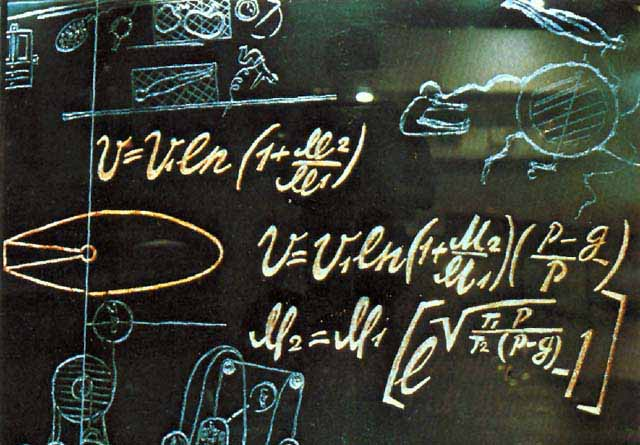 V=V₁ln(1+M2/M1)
V=V₁ln(1+M2/M1)(p-g/p)
M₂=M₁[e√(T1/T2 p/(p-g))-1]